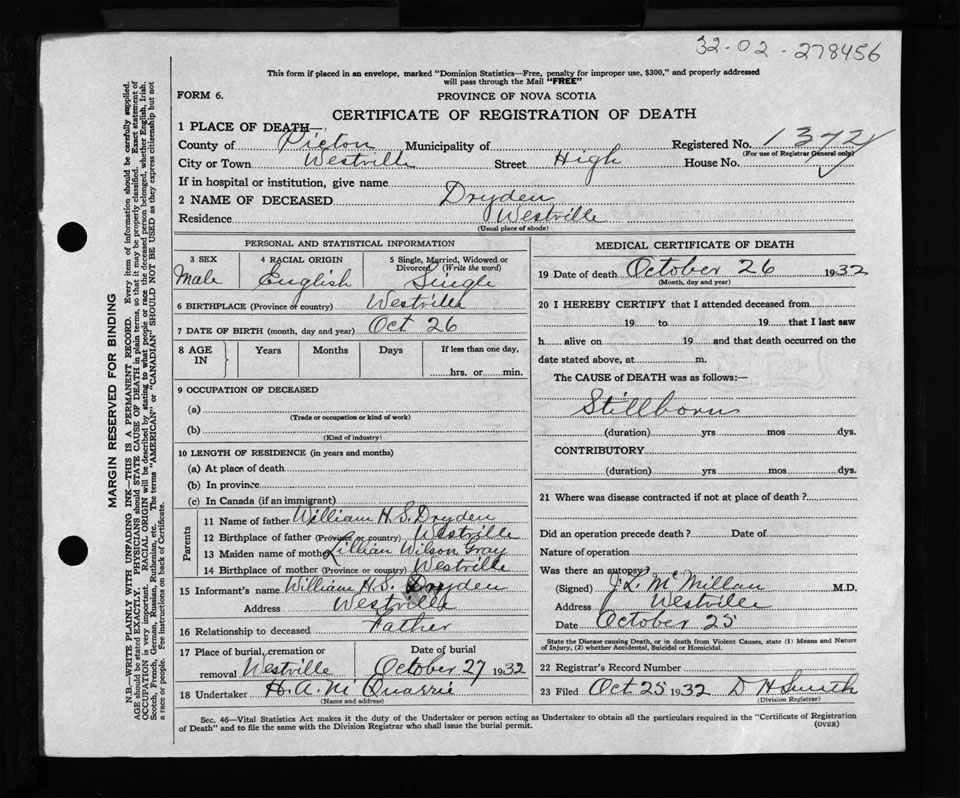 32-02-278456
This form if placed in an envelope, marked "Dominion Statistics—Free, penalty for improper use, $300," and properly addressed
will pass through the Mail "FREE"
FORM 6.
PROVINCE OF NOVA SCOTIA
CERTIFICATE OF REGISTRATION OF DEATH
1 PLACE OF DEATH—
County of Pictou Municipality of Registered No. 1372
(For use of Registrar General only)
City or Town Westville Street High House No.
If in hospital or institution, give name
2 NAME OF DECEASED Dryden
Residence Westville
(Usual place of abode)
PERSONAL AND STATISTICAL INFORMATION
3 SEX 4 RACIAL ORIGIN 5 Single, Married, Widowed or
Divorced (Write the word)
Male English Single
6 BIRTHPLACE (Province or country) Westville
7 DATE OF BIRTH (month, day and year) Oct 26
8 AGE IN Years Months Days If less than one day,
hrs. or min.
9 OCCUPATION OF DECEASED
(a)
(Trade or occupation or kind of work)
(b)
(Kind of industry)
10 LENGTH OF RESIDENCE (in years and months)
(a) At place of death
(b) In province
(c) In Canada (if an immigrant)
Parents
11 Name of father William H. S. Dryden
12 Birthplace of father (Province or country) Westville
13 Maiden name of mother Lillian Wilson Gray
14 Birthplace of mother (Province or country) Westville
15 Informant's name William H. S. Dryden
Address Westville
16 Relationship to deceased Father
17 Place of burial, cremation or Date of burial
removal Westville October 27 1932
18 Undertaker H. A. Mc Quarrie
(Name and address)
MEDICAL CERTIFICATE OF DEATH
19 Date of death October 26 1932
(Month, day and year)
20 I HEREBY CERTIFY that I attended deceased from
19 to 19 that I last saw
h alive on 19 and that death occurred on the
date stated above, at m.
The CAUSE of DEATH was as follows:—
Stillborn
(duration) yrs mos dys.
CONTRIBUTORY
(duration) yrs mos dys.
21 Where was disease contracted if not at place of death?
Did an operation precede death? Date of
Nature of operation
Was there an autopsy?
(Signed) J. L. McMillan M.D.
Address Westville
Date October 25
State the Disease causing Death, or in death from Violent Causes, state (1) Means and Nature
of Injury, (2) whether Accidental, Suicidal or Homicidal.
22 Registrar's Record Number
23 Filed Oct 25 1932 D H Smith
(Division Registrar)
Sec. 46—Vital Statistics Act makes it the duty of the Undertaker or person acting as Undertaker to obtain all the particulars required in the "Certificate of Registration
of Death" and to file the same with the Division Registrar who shall issue the burial permit.
(OVER)
MARGIN RESERVED FOR BINDING
N.B.—WRITE PLAINLY WITH UNFADING INK—THIS IS A PERMANENT RECORD. Every item of information should be carefully supplied.
AGE should be stated EXACTLY. PHYSICIANS should STATE CAUSE OF DEATH in plain terms, so that it may be properly classified. Exact statement of
OCCUPATION is very important. RACIAL ORIGIN will be described by stating to what people or race the deceased person belonged, whether English, Irish,
Scotch, French, German, Russian, Ruthenian, etc. The terms "AMERICAN" or "CANADIAN" SHOULD NOT BE USED as they express citizenship but not
a race or people. Fee instructions on back of Certificate.